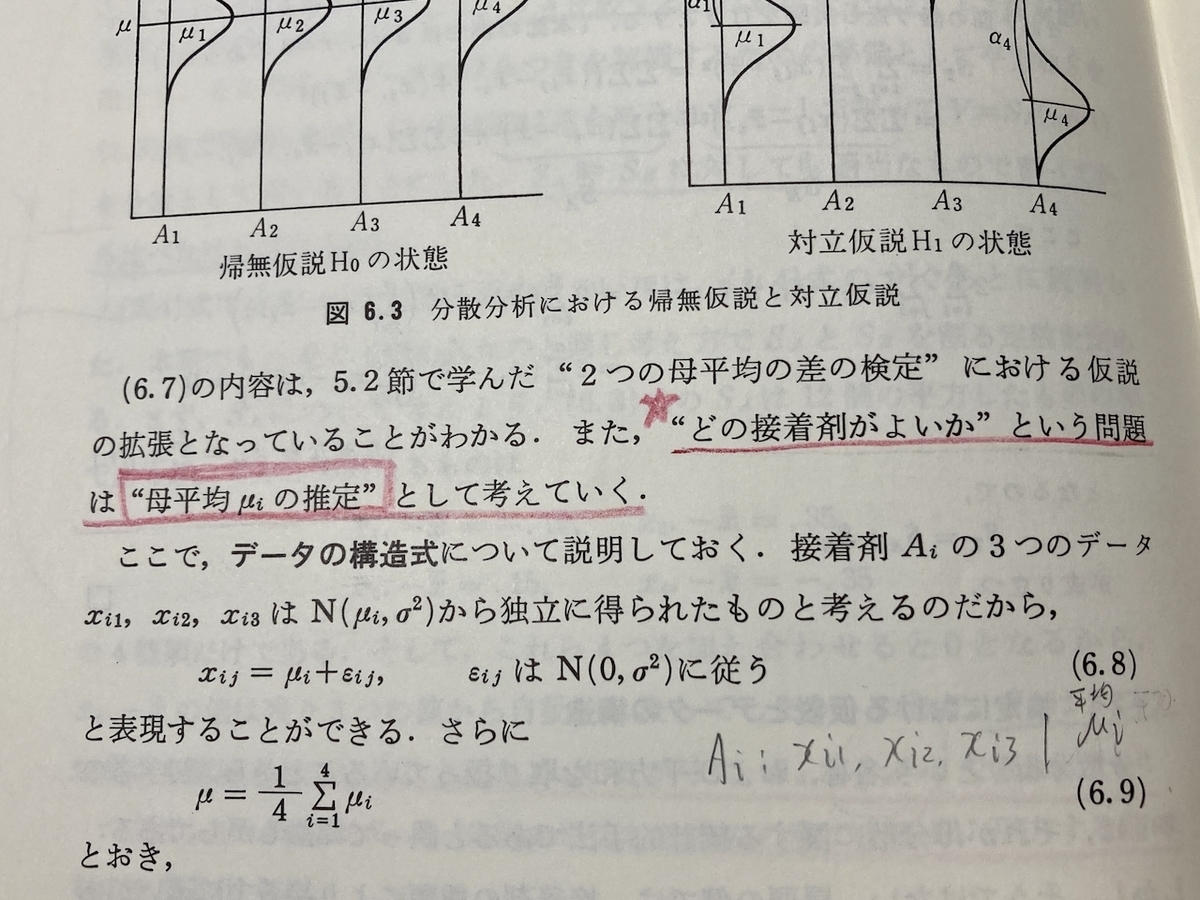 μ μ1 μ2 μ3 μ4
α1 μ1 α4 μ4
A1 A2 A3 A4
A1 A2 A3 A4
帰無仮説H0の状態
対立仮説H1の状態
図 6.3 分散分析における帰無仮説と対立仮説
(6.7)の内容は,5.2節で学んだ “2つの母平均の差の検定” における仮説
の拡張となっていることがわかる. また, “どの接着剤がよいか” という問題
は “母平均 μi の推定” として考えていく.
ここで,データの構造式について説明しておく. 接着剤 Ai の3つのデータ
xi1, xi2, xi3 は N(μi, σ²)から独立に得られたものと考えるのだから,
xij = μi+εij, εij は N(0, σ²)に従う (6.8)
と表現することができる. さらに
平均
Ai : xi1, xi2, xi3 | μi
μ = 1/4 Σ(i=1→4) μi (6.9)
とおき,